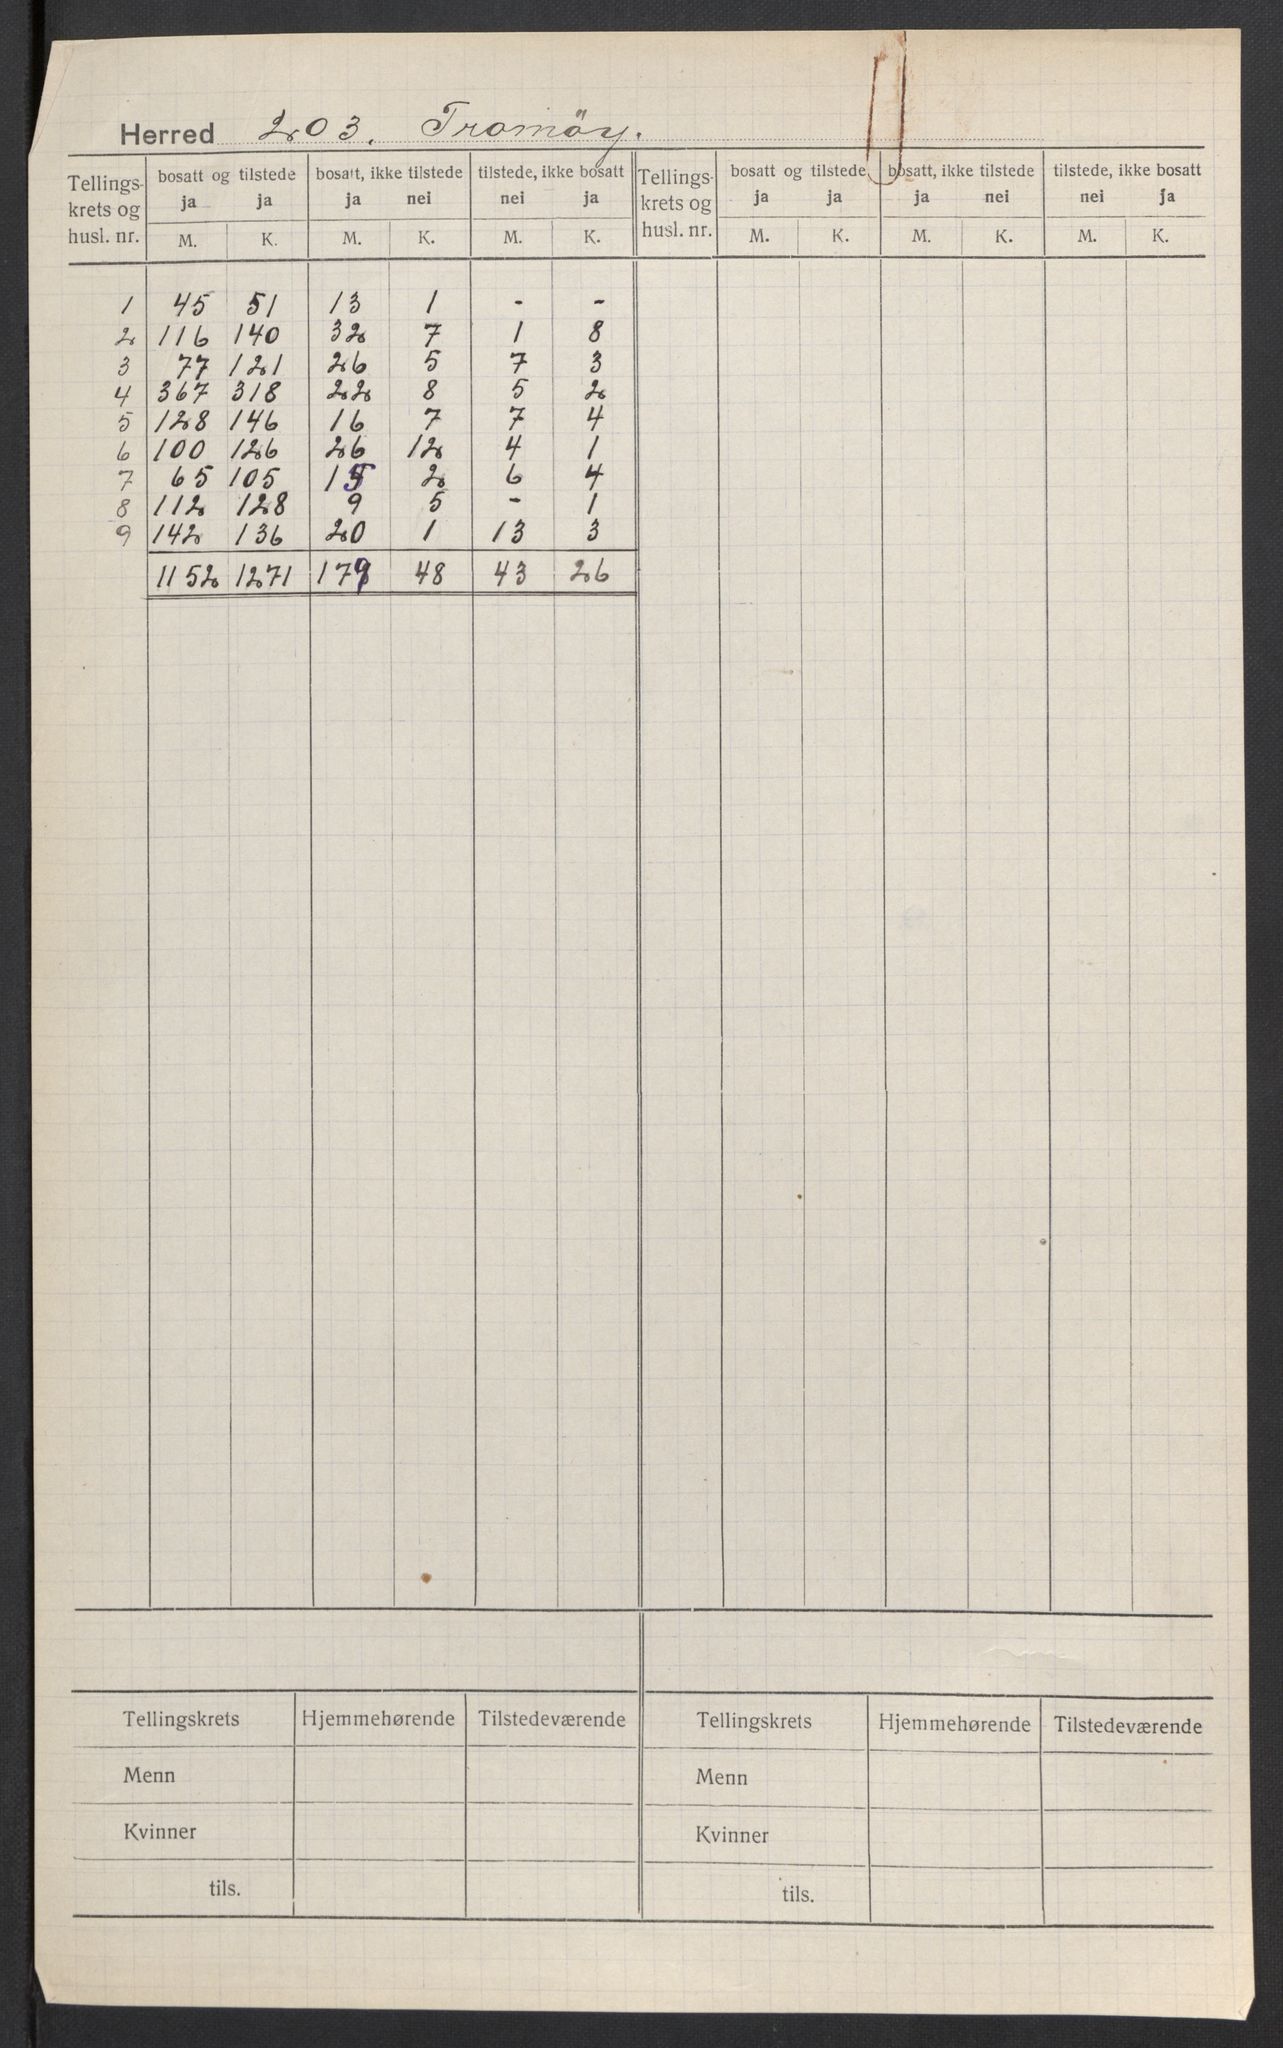 Herred 203. Tromöy.
Tellings- krets og husl. nr. | bosatt og tilstede | bosatt, ikke tilstede | tilstede, ikke bosatt | Tellings- krets og husl. nr. | bosatt og tilstede | bosatt, ikke tilstede | tilstede, ikke bosatt
ja ja ja nei nei ja ja ja ja nei nei ja
M. K. M. K. M. K. M. K. M. K. M. K.
1 45 51 13 1 - -
2 116 140 32 7 1 8
3 77 121 26 5 7 3
4 367 318 22 8 5 2
5 128 146 16 7 7 4
6 100 126 26 12 4 1
7 65 105 15 2 6 4
8 112 128 9 5 - 1
9 142 136 20 1 13 3
1152 1271 179 48 43 26
Tellingskrets Hjemmehørende Tilstedeværende Tellingskrets Hjemmehørende Tilstedeværende
Menn Menn
Kvinner Kvinner
tils. tils.